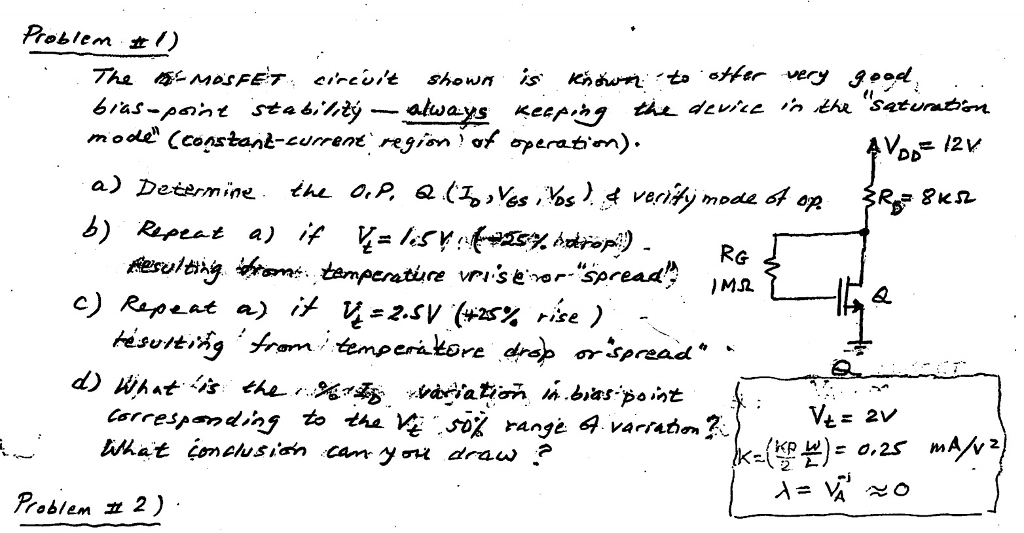 Problem #1)
The MOSFET circuit shown is known to offer very good
bias-point stability — always keeping the device in the "saturation
mode" (constant-current region of operation).
a) Determine the O.P. Q (I_D, V_GS, V_DS) & verify mode of op.
b) Repeat a) if V_t = 1.5V (-25% drop)
resulting from temperature rise or "spread"
c) Repeat a) if V_t = 2.5V (+25% rise)
resulting from temperature drop or "spread"
d) What is the % I_D variation in bias point
corresponding to the V_t 50% range of variation?
What conclusion can you draw?
V_DD = 12V
R_D = 8KΩ
RG
1MΩ
Q
Q
V_t = 2V
K=(KP/2 W/L) = 0.25 mA/V²
λ = V_A⁻¹ ≈ 0
Problem #2)